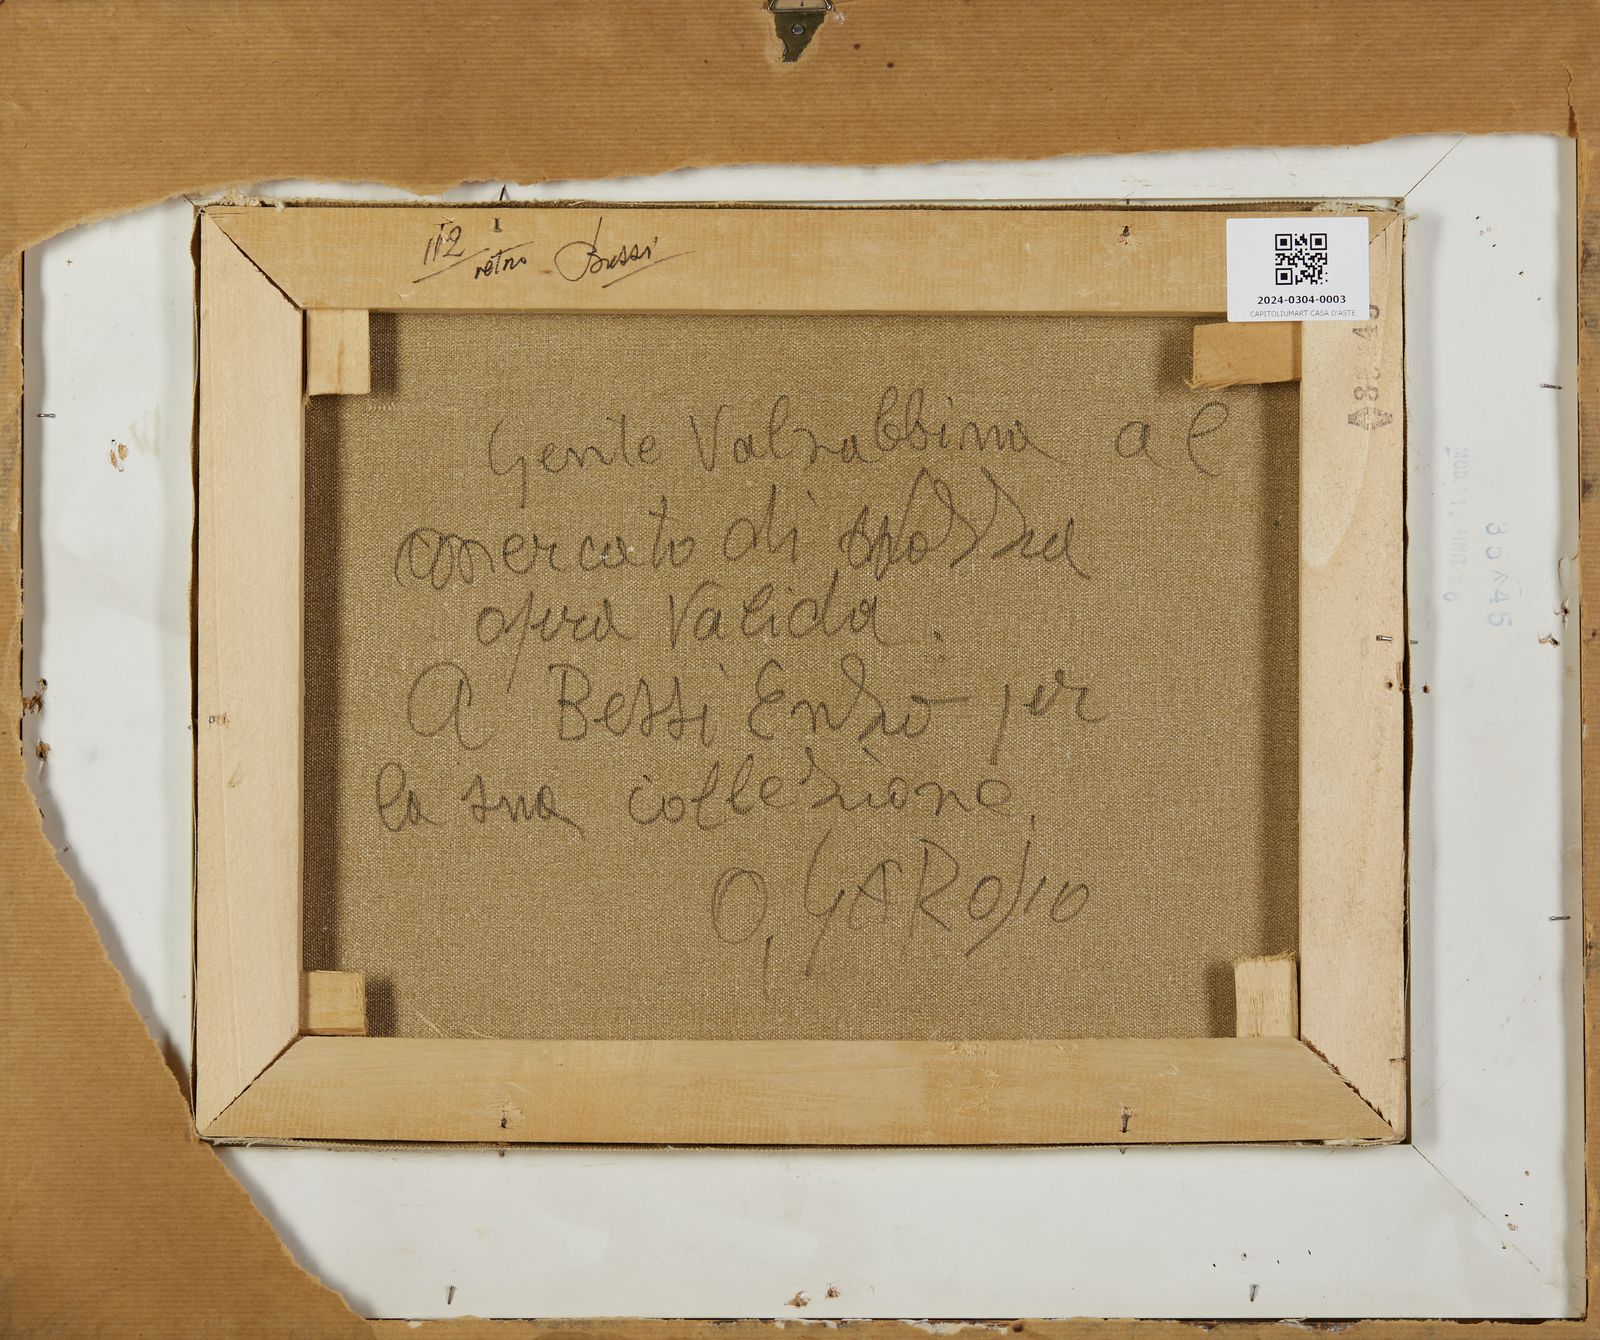 112
retro Bessi
2024-0304-0003
CAPITOLIUMART CASA D'ASTE
Gente Valsabbina al
mercato di
opera Valida.
A Bessi Enzo per
la sua collezione,
O, GAROSIO
30 45